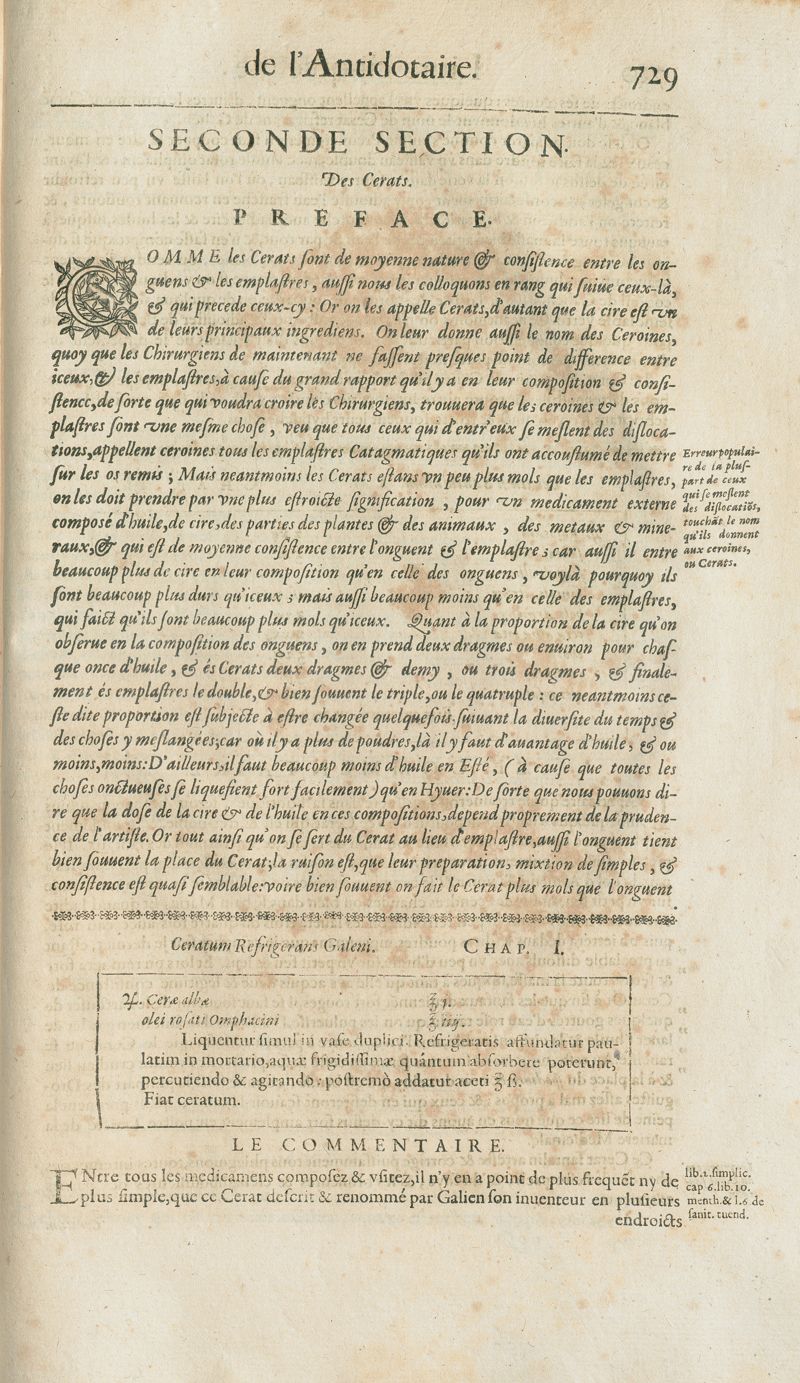 de l'Antidotaire.
729
SECONDE SECTION.
Des Cerats.
PREFACE.
COMME les Cerats ſont de moyenne nature & conſiſtence entre les on-
guens & les emplaſtres, auſſi nous les colloquons en rang qui ſuiue ceux-là,
& qui precede ceux-cy: Or on les appelle Cerats, d'autant que la cire eſt vn
de leurs principaux ingrediens. On leur donne auſſi le nom des Ceroines,
quoy que les Chirurgiens de maintenant ne faſſent preſques point de difference entre
iceux, & les emplaſtres, à cauſe du grand rapport qu'il y a en leur compoſition & conſi-
ſtence, de ſorte que qui voudra croire les Chirurgiens, trouuera que les ceroines & les em-
plaſtres ſont vne meſme choſe, veu que tous ceux qui d'entr'eux ſe meſlent des diſloca-
tions, appellent ceroines tous les emplaſtres Catagmatiques qu'ils ont accouſtumé de mettre
ſur les os remis; Mais neantmoins les Cerats eſtans vn peu plus mols que les emplaſtres,
on les doit prendre par vne plus eſtroicte ſignification, pour vn medicament externe
compoſé d'huile, de cire, des parties des plantes & des animaux, des metaux & mine-
raux, & qui eſt de moyenne conſiſtence entre l'onguent & l'emplaſtre; car auſſi il entre
beaucoup plus de cire en leur compoſition qu'en celle des onguens, voylà pourquoy ils
ſont beaucoup plus durs qu'iceux; mais auſſi beaucoup moins qu'en celle des emplaſtres,
qui faict qu'ils ſont beaucoup plus mols qu'iceux. Quant à la proportion de la cire qu'on
obſerue en la compoſition des onguens, on en prend deux dragmes ou enuiron pour chaſ-
que once d'huile, & és Cerats deux dragmes & demy, ou trois dragmes, & finale-
ment és emplaſtres le double, & bien ſouuent le triple, ou le quatruple: ce neantmoins ce-
ſte dite proportion eſt ſubjecte à eſtre changée quelquefois ſuiuant la diuerſite du temps &
des choſes y meſlangées; car où il y a plus de poudres, là il y faut d'auantage d'huile, & ou
moins, moins: D'ailleurs, il faut beaucoup moins d'huile en Eſté, (à cauſe que toutes les
choſes onctueuſes ſe liquefient fort facilement) qu'en Hyuer: De ſorte que nous pouuons di-
re que la doſe de la cire & de l'huile en ces compoſitions, depend proprement de la pruden-
ce de l'artiſte. Or tout ainſi qu'on ſe ſert du Cerat au lieu d'emplaſtre, auſſi l'onguent tient
bien ſouuent la place du Cerat; la raiſon eſt, que leur preparation, mixtion de ſimples, &
conſiſtence eſt quaſi ſemblable: voire bien ſouuent on fait le Cerat plus mols que l'onguent
Erreur populai-
re de la pluſ-
part de ceux
qui ſe meſlent
des diſlocatiõs,
touchãt le nom
qu'ils donnent
aux ceroines,
ou Cerats.
Ceratum Refrigerans Galeni. CHAP. I.
♃. Ceræ albæ ℥ j.
olei roſati Omphacini ℥ iiij.
Liquentur ſimul in vaſe duplici. Refrigeratis affundatur pau-
latim in mortario, aquæ frigidiſſimæ quántum abſorbere poterunt,
percutiendo & agitando: poſtremò addatur aceti ℥ ß.
Fiat ceratum.
LE COMMENTAIRE.
ENtre tous les medicamens compoſez & vſitez, il n'y en a point de plus frequẽt ny de
plus ſimple, que ce Cerat deſcrit & renommé par Galien ſon inuenteur en pluſieurs
endroicts
lib. 1. ſimplic.
cap 6. lib. 10.
meth. & l. 6 de
ſanit. tuend.